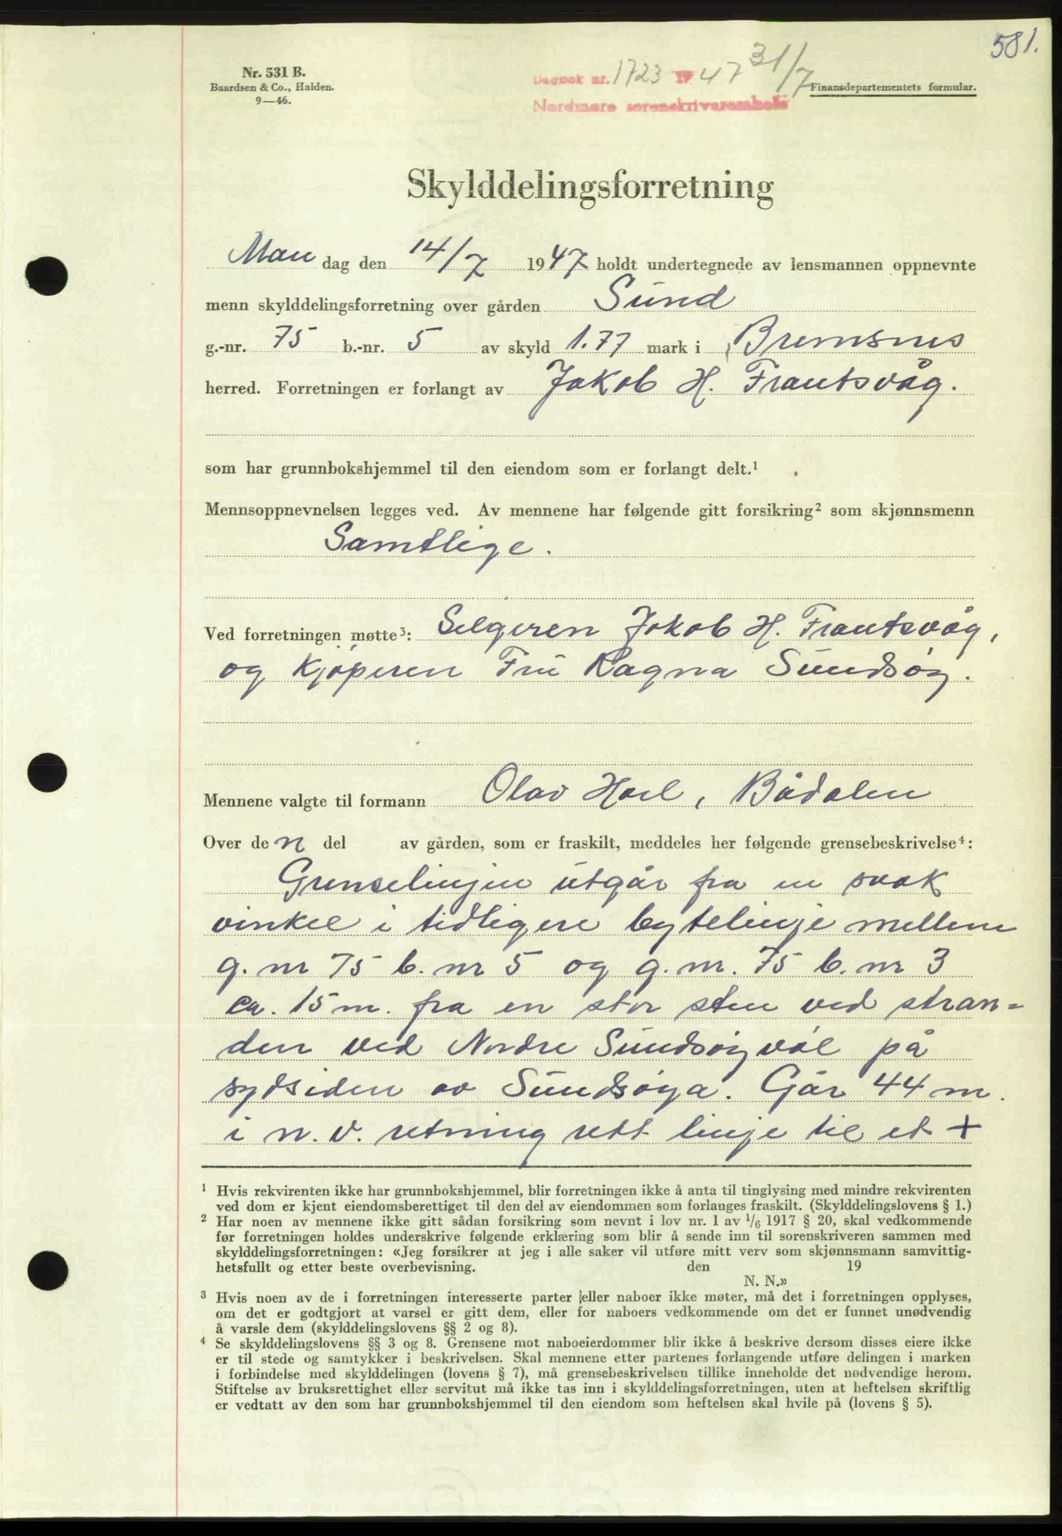 581.
Nr. 531 B.
Baardsen & Co., Halden.
9—46.
Dagbok nr. 1723 1947 31/7
Nordmøre sorenskriverembete
Finansdepartementets formular.
Skylddelingsforretning
Mandag den 14/7 1947 holdt undertegnede av lensmannen oppnevnte
menn skylddelingsforretning over gården Sund
g.-nr. 75 b.-nr. 5 av skyld 1.77 mark i Bremsnes
herred. Forretningen er forlangt av Jakob H. Frantsvåg.
som har grunnbokshjemmel til den eiendom som er forlangt delt.¹
Mennsoppnevnelsen legges ved. Av mennene har følgende gitt forsikring² som skjønnsmenn
Samtlige.
Ved forretningen møtte³: Selgeren Jakob H. Frantsvåg,
og kjøperen Fru Ragna Sundsøy.
Mennene valgte til formann Olav Hoel, Bådalen
Over den del av gården, som er fraskilt, meddeles her følgende grensebeskrivelse⁴:
Grenselinjen utgår fra en svak
vinkel i tidligere bytelinje mellem
g. nr 75 b. nr 5 og g. nr. 75 b. nr 3
ca. 15 m. fra en stor sten ved stran=
den ved Nordre Sundsøyvåe på
sydsiden av Sundsøya. Går 44 m.
i n. v. retning rett linje til et +
¹ Hvis rekvirenten ikke har grunnbokshjemmel, blir forretningen ikke å anta til tinglysing med mindre rekvirenten
ved dom er kjent eiendomsberettiget til den del av eiendommen som forlanges fraskilt. (Skylddelingslovens § 1.)
² Har noen av mennene ikke gitt sådan forsikring som nevnt i lov nr. 1 av 1/6 1917 § 20, skal vedkommende
før forretningen holdes underskrive følgende erklæring som blir å sende inn til sorenskriveren sammen med
skylddelingsforretningen: «Jeg forsikrer at jeg i alle saker vil utføre mitt verv som skjønnsmann samvittig-
hetsfullt og etter beste overbevisning. den 19
N. N.»
³ Hvis noen av de i forretningen interesserte parter eller naboer ikke møter, må det i forretningen opplyses,
om det er godtgjort at varsel er gitt dem, eller for naboers vedkommende om det er funnet unødvendig
å varsle dem (skylddelingslovens §§ 2 og 8).
⁴ Se skylddelingslovens §§ 3 og 8. Grensene mot naboeierdommer blir ikke å beskrive dersom disses eiere ikke
er til stede og samtykker i beskrivelsen. Skal mennene etter partenes forlangende utføre delingen i marken
i forbindelse med skylddelingen (lovens § 7), må grensebeskrivelsen tillike inneholde det nødvendige herom.
Stiftelse av bruksrettighet eller servitut må ikke tas inn i skylddelingsforretningen, uten at heftelsen skriftlig
er vedtatt av den som har grunnbokshjemmel til den eiendom som heftelsen skal hvile på (lovens § 5).